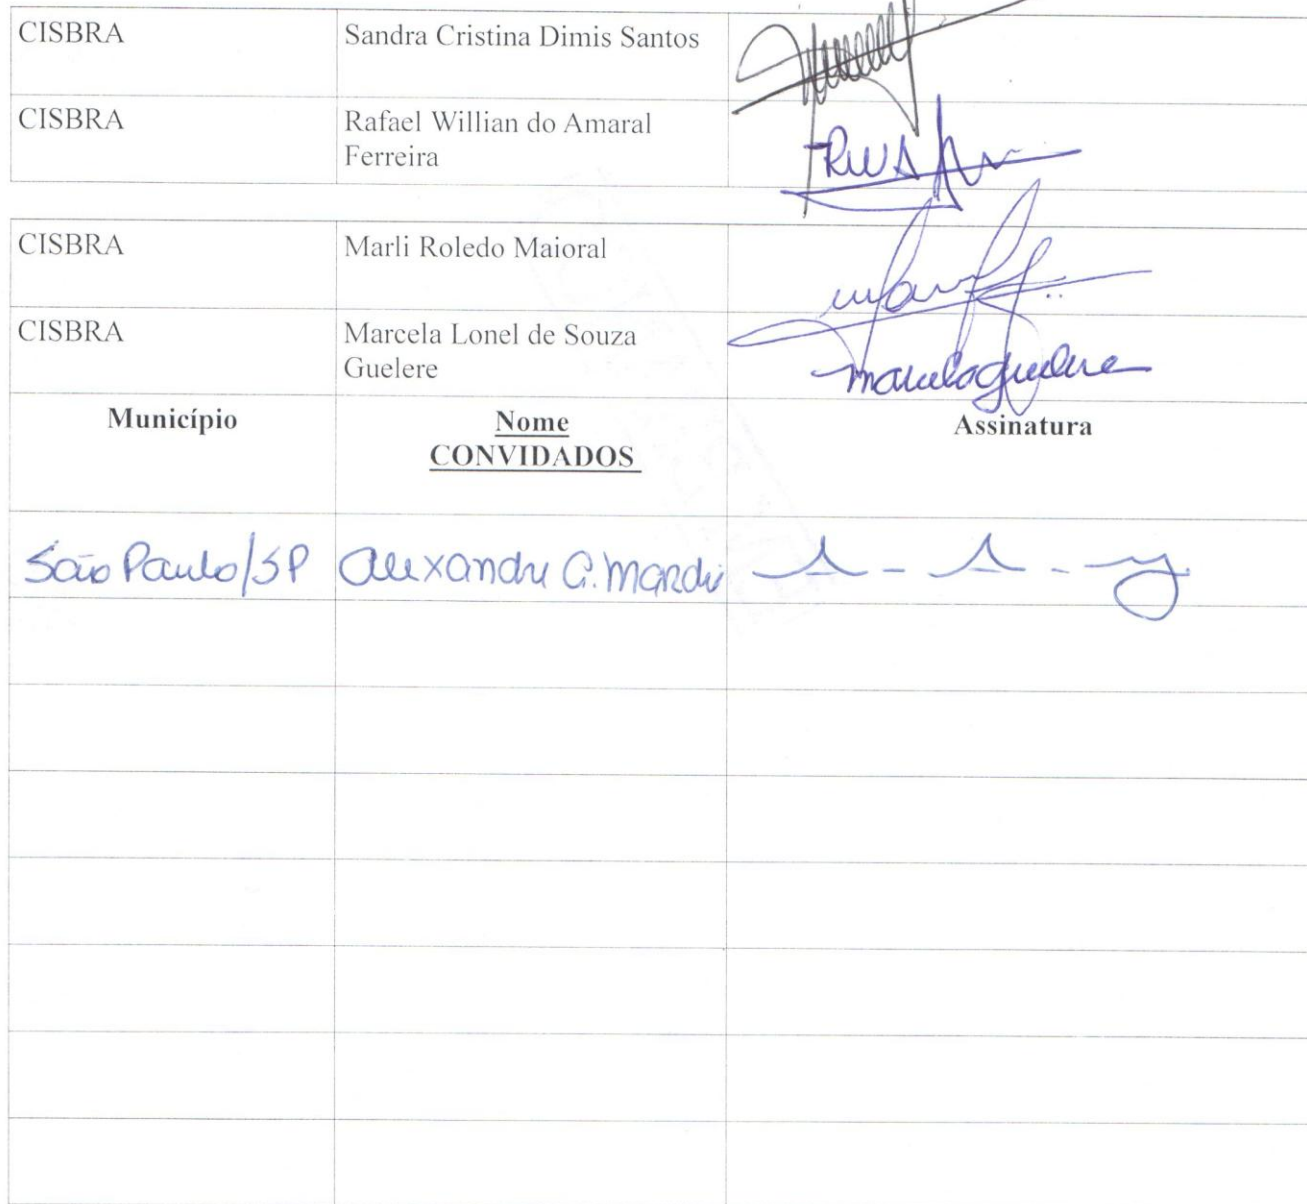 CISBRA
Sandra Cristina Dimis Santos
CISBRA
Rafael Willian do Amaral
Ferreira
CISBRA
Marli Roledo Maioral
CISBRA
Marcela Lonel de Souza
Guelere
marcela guelere
Município
Nome
CONVIDADOS
Assinatura
São Paulo/SP
Alexandre G.